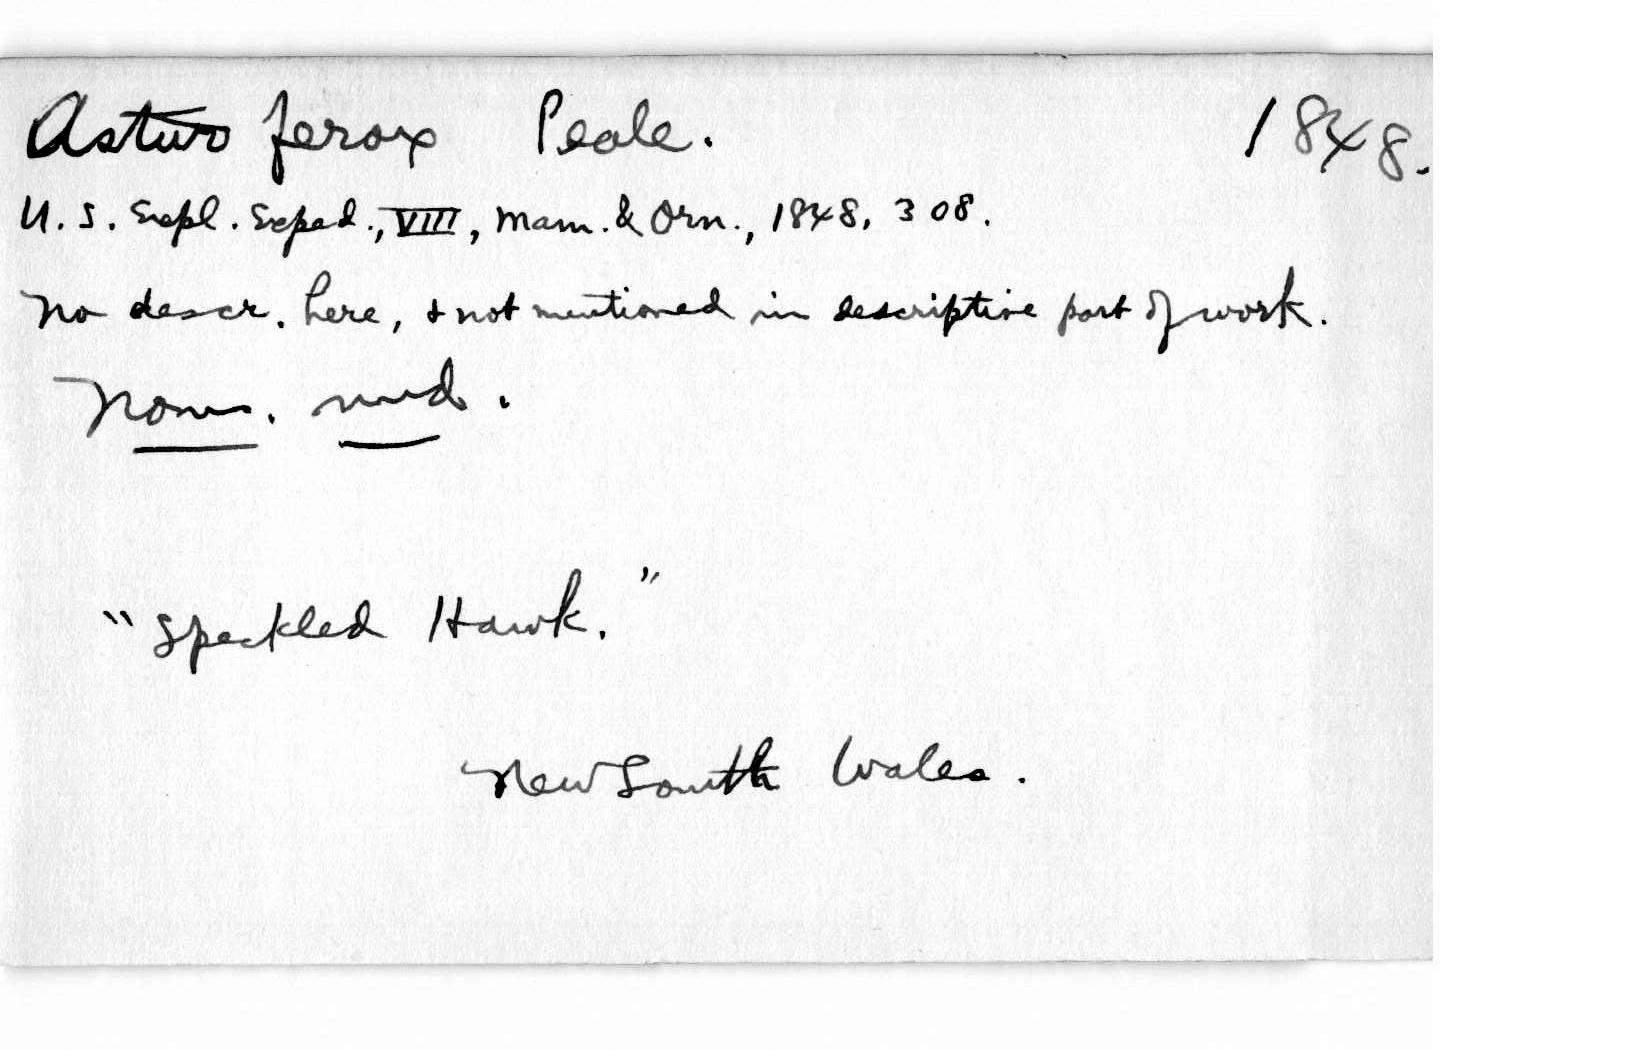 Astur ferox Peale. 1848.
U. S. Expl. Exped., VIII, Mam. & Orn., 1848, 308.
No descr. here, & not mentioned in descriptive part of work.
Nom. nud.
"Speckled Hawk."
New South Wales.